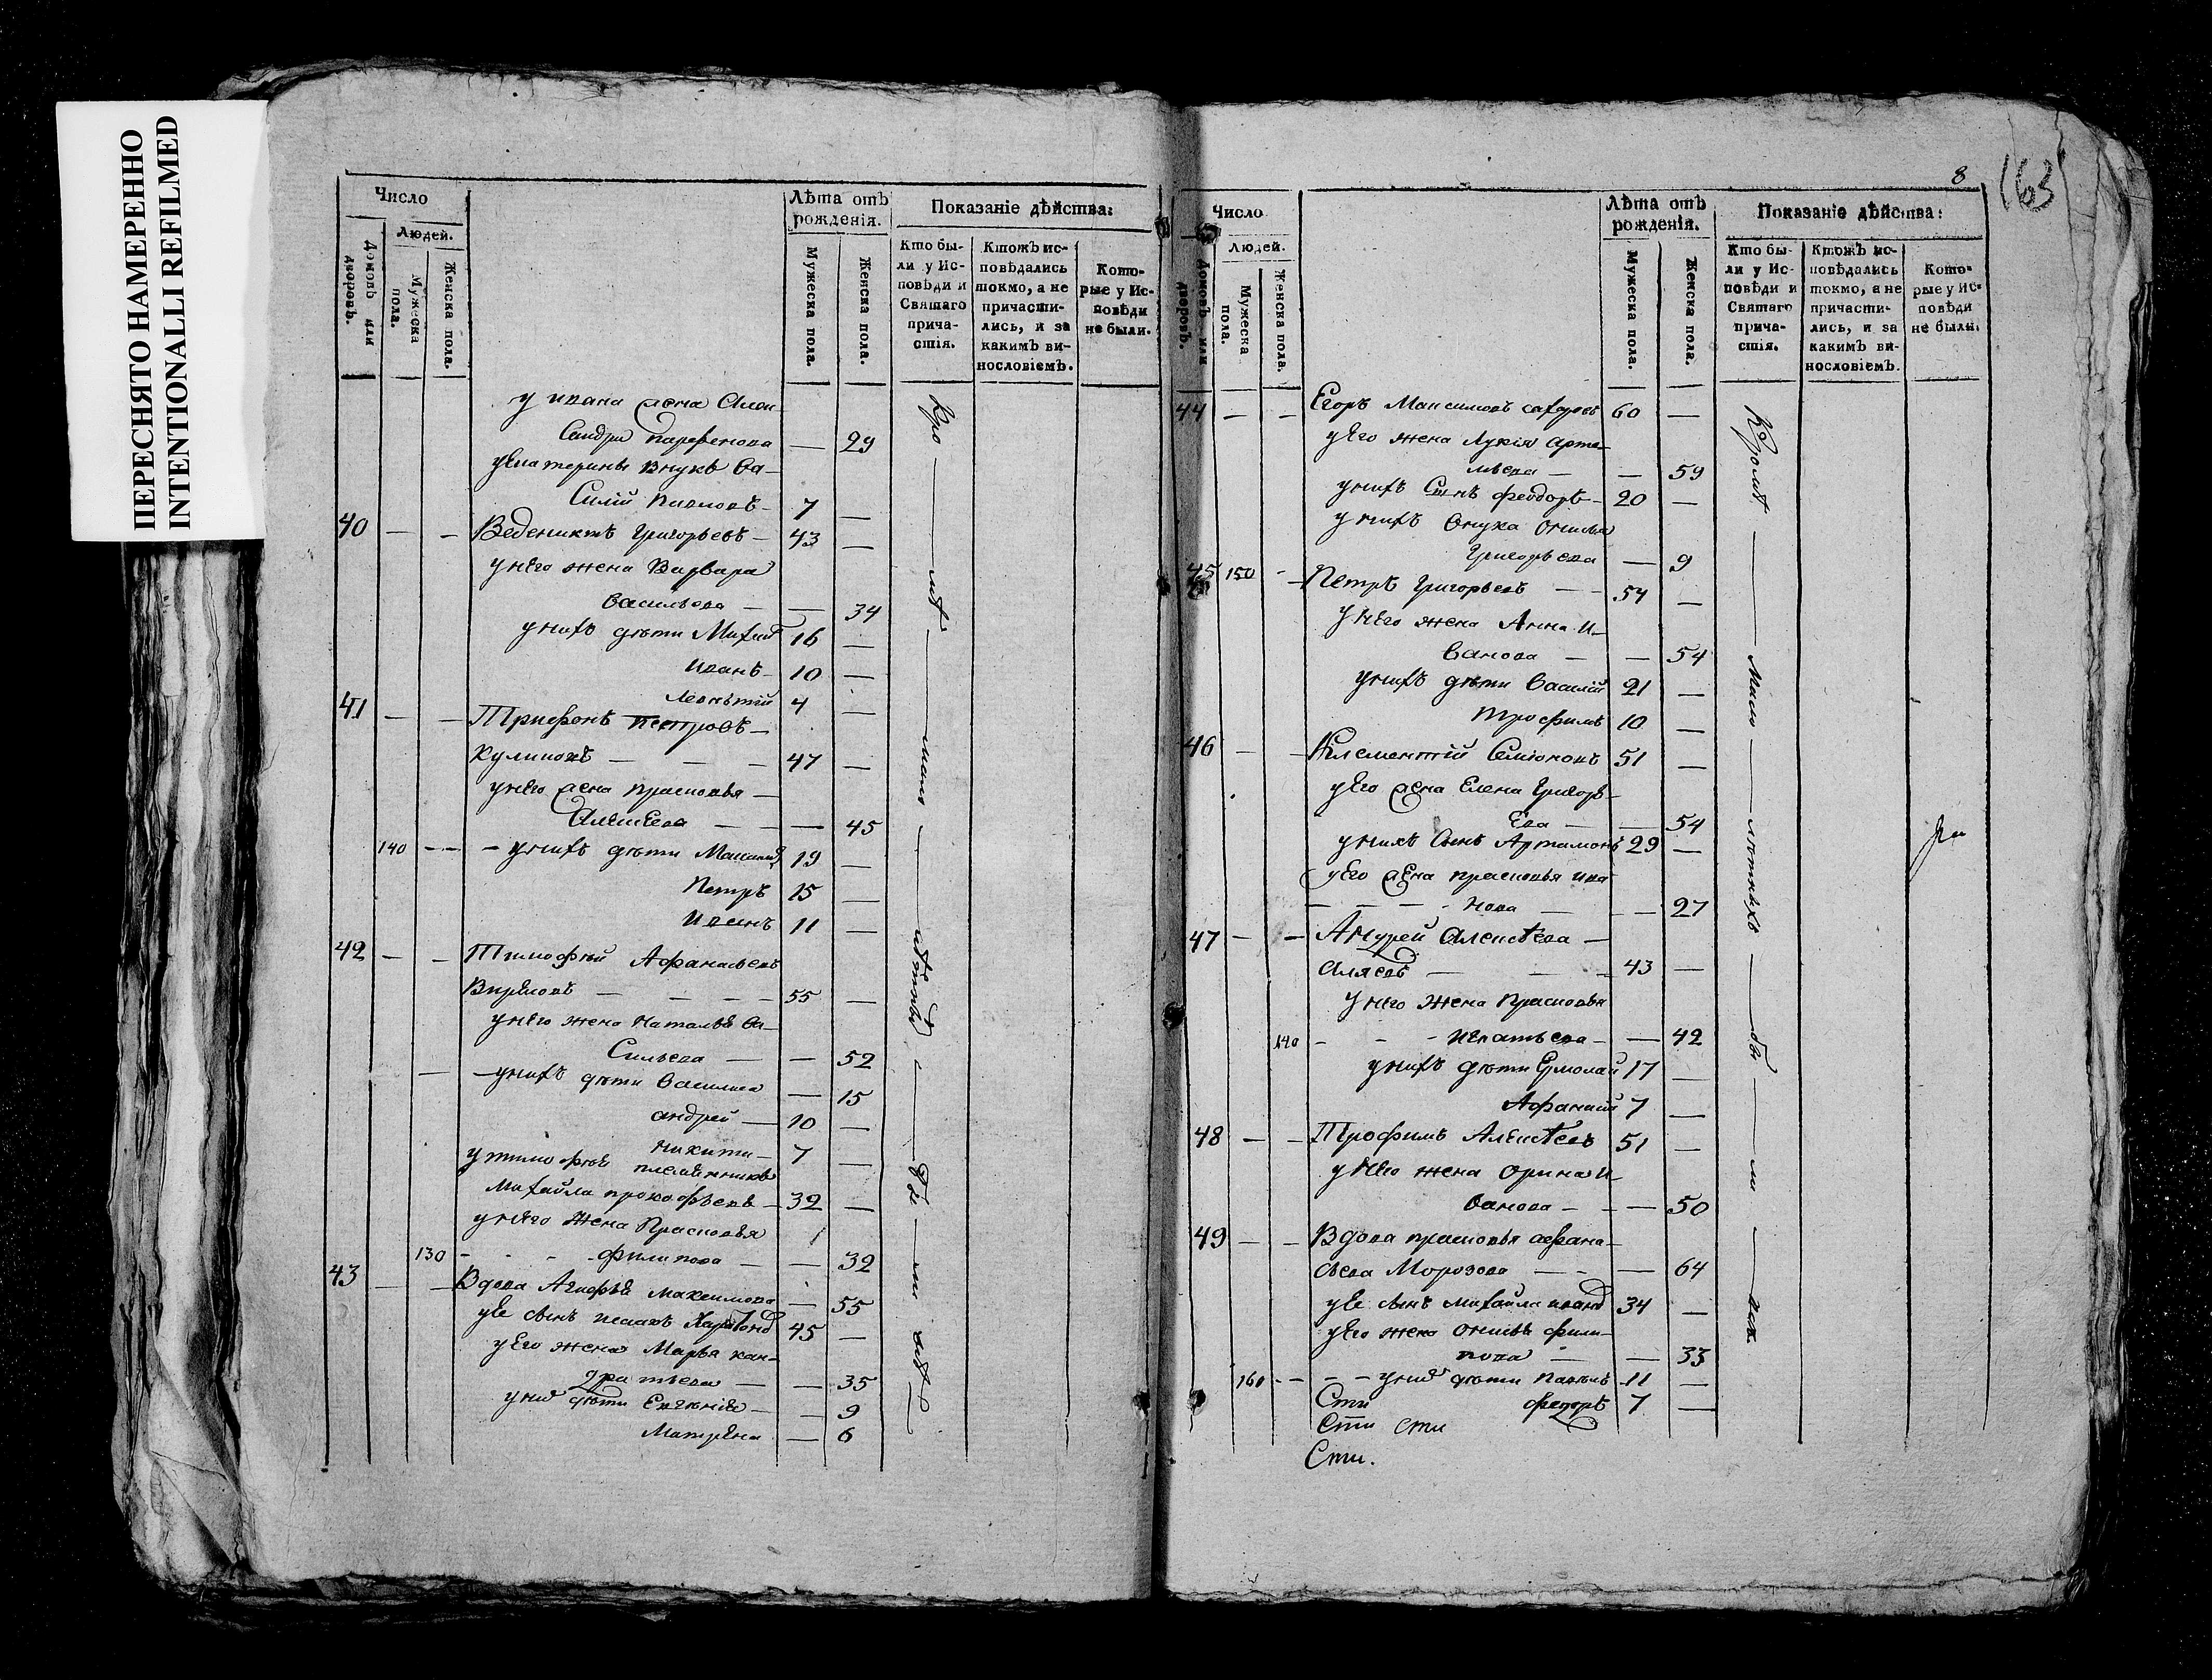 ПЕРЕСНЯТО НАМЕРЕННО
INTENTIONALLI REFILMED
Число
Людей.
Домовъ или дворовъ.
Мужеска пола.
Женска пола.
Лѣта отъ рожденія.
Мужеска пола.
Женска пола.
Показаніе дѣйства:
Кто были у Исповѣди и Святаго причастія.
Ктожъ исповѣдались токмо, а не причастились, и за какимъ винословіемъ.
Которые у Исповѣди не были.
у ивана жена Алек
сандра парфенова — 29
у Екатерины внукъ Ва-
силій 7 —
40 — — Ведениктъ Григорьевъ — 43 —
у него жена Варвара
Васильева — — 34
у нихъ дѣти 16 —
Иванъ 10 —
Леонътій 4 —
41 — — Трифонъ Петровъ —
47 —
у него жена прасковья —
Алексѣева — — 45
140 — у нихъ дѣти 19 —
Петръ 15 —
Иванъ 11 —
42 — — Тимофѣй Афанасьевъ
55 —
у него жена Наталья Ва-
сильева — — 52
— у нихъ дѣти Василиса — 15
андрей — 10 —
никита — 7 —
у тимофѣя племенникъ
Михайла прокофьевъ — 32 —
у него жена Прасковья
130 - филипова — — 32
43 — — Вдова Агафья Максимова — 55
у ее сынъ 45 —
у его жена Марья кан-
дратьева — — 35
у нихъ дѣти Евгенія — — 9
Матрена — 6
8
163
Число
Людей.
Домовъ или дворовъ.
Мужеска пола.
Женска пола.
Лѣта отъ рожденія.
Мужеска пола.
Женска пола.
Показаніе дѣйства:
Кто были у Исповѣди и Святаго причастія.
Ктожъ исповѣдались токмо, а не причастились, и за какимъ винословіемъ.
Которые у Исповѣди не были.
44 — — Егоръ Максимовъ 60 —
у его жена Лукія арте-
мьева — — 59
у нихъ сынъ феодоръ — 20 —
у нихъ внука
Григорьева — 9
45 150 — Петръ Григорьевъ — 54 —
у него жена Анна И-
ванова — — 54
у нихъ дѣти Василій 21 —
трофимъ 10 —
46 — — Клементій Семіоновъ 51 —
у его жена Елена Григорь-
ева — — 54
у нихъ сынъ Артамонъ 29 —
у его жена прасковья ива
нова — — 27
47 — — Андрей Алексѣевъ —
— 43 —
у него жена Прасковья
140 - Игнатьева — — 42
у нихъ дѣти Ермолай 17 —
Афанасій 7 —
48 — — Трофимъ Алексѣевъ 51 —
у него жена Орина И-
ванова — — 50
49 — — Вдова прасковья афана-
сьева Морозова — — 64
у ее сынъ михайла ивановъ 34 —
у его жена фили-
пова — — 33
160 — у нихъ дѣти Павелъ 11 —
Сти федоръ 7 —
Сти сти
Сти.